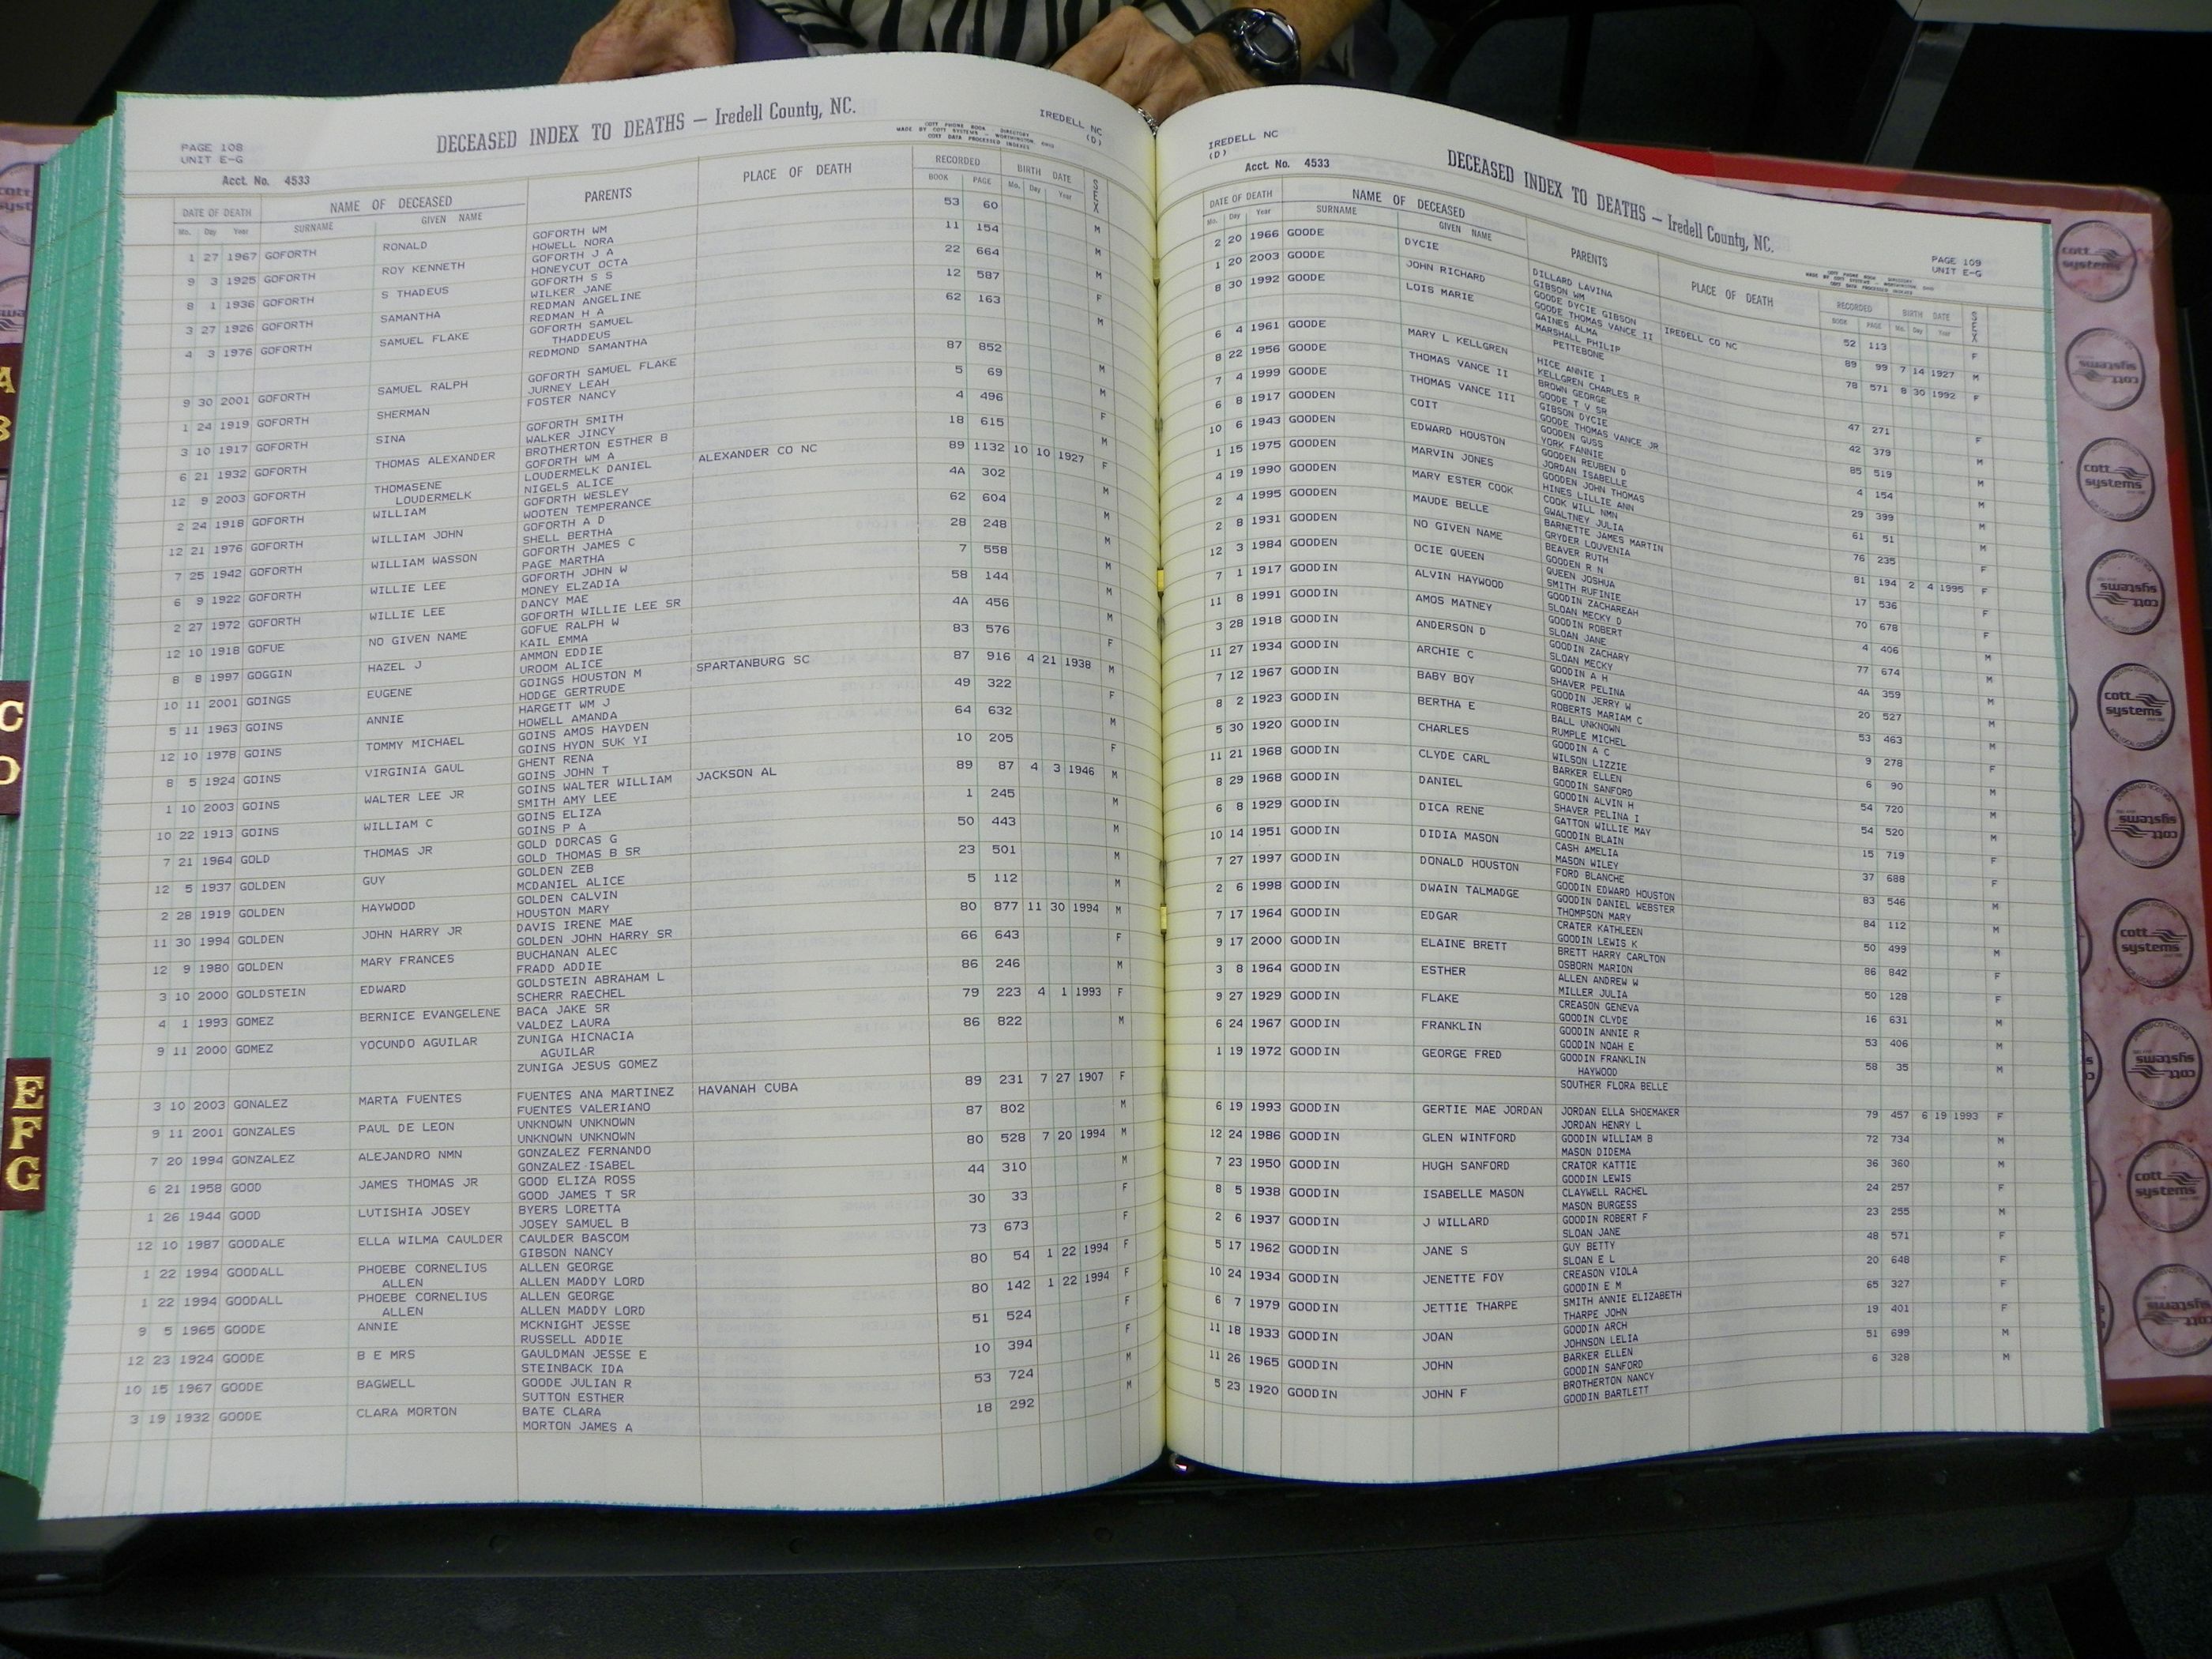 PAGE 108
UNIT E-G
DECEASED INDEX TO DEATHS — Iredell County, NC.
IREDELL NC
(D)
Acct. No. 4533
DATE OF DEATH NAME OF DECEASED PARENTS PLACE OF DEATH RECORDED BIRTH DATE SEX
Mo. Day Year SURNAME GIVEN NAME BOOK PAGE Mo. Day Year
1 27 1967 GOFORTH RONALD GOFORTH WM 53 60 M
HOWELL NORA
9 3 1925 GOFORTH ROY KENNETH GOFORTH J A 11 154 M
HONEYCUT OCTA
8 1 1936 GOFORTH S THADEUS GOFORTH S S 22 664 M
WILKER JANE
3 27 1926 GOFORTH SAMANTHA REDMAN ANGELINE 12 587 F
REDMAN H A
4 3 1976 GOFORTH SAMUEL FLAKE GOFORTH SAMUEL 62 163 M
THADDEUS
REDMOND SAMANTHA
9 30 2001 GOFORTH SAMUEL RALPH GOFORTH SAMUEL FLAKE 87 852 M
JURNEY LEAH
1 24 1919 GOFORTH SHERMAN FOSTER NANCY 5 69 M
3 10 1917 GOFORTH SINA GOFORTH SMITH 4 496 F
WALKER JINCY
6 21 1932 GOFORTH THOMAS ALEXANDER BROTHERTON ESTHER B 18 615 M
GOFORTH WM A
12 9 2003 GOFORTH THOMASENE LOUDERMELK DANIEL ALEXANDER CO NC 89 1132 10 10 1927 F
LOUDERMELK NIGELS ALICE
2 24 1918 GOFORTH WILLIAM GOFORTH WESLEY 4A 302 M
WOOTEN TEMPERANCE
12 21 1976 GOFORTH WILLIAM JOHN GOFORTH A D 62 604 M
SHELL BERTHA
7 25 1942 GOFORTH WILLIAM WASSON GOFORTH JAMES C 28 248 M
PAGE MARTHA
6 9 1922 GOFORTH WILLIE LEE GOFORTH JOHN W 7 558 M
MONEY ELZADIA
2 27 1972 GOFORTH WILLIE LEE DANCY MAE 58 144 M
GOFORTH WILLIE LEE SR
12 10 1918 GOFUE NO GIVEN NAME GOFUE RALPH W 4A 456 M
KAIL EMMA
8 8 1997 GOGGIN HAZEL J AMMON EDDIE 83 576 F
UROOM ALICE
10 11 2001 GOINGS EUGENE GOINGS HOUSTON M SPARTANBURG SC 87 916 4 21 1938 M
HODGE GERTRUDE
5 11 1963 GOINS ANNIE HARGETT WM J 49 322 F
HOWELL AMANDA
12 10 1978 GOINS TOMMY MICHAEL GOINS AMOS HAYDEN 64 632 M
GOINS HYON SUK YI
8 5 1924 GOINS VIRGINIA GAUL GHENT RENA 10 205 F
GOINS JOHN T
1 10 2003 GOINS WALTER LEE JR GOINS WALTER WILLIAM JACKSON AL 89 87 4 3 1946 M
SMITH AMY LEE
10 22 1913 GOINS WILLIAM C GOINS ELIZA 1 245 M
GOINS P A
7 21 1964 GOLD THOMAS JR GOLD DORCAS G 50 443 M
GOLD THOMAS B SR
12 5 1937 GOLDEN GUY GOLDEN ZEB 23 501 M
MCDANIEL ALICE
2 28 1919 GOLDEN HAYWOOD GOLDEN CALVIN 5 112 M
HOUSTON MARY
11 30 1994 GOLDEN JOHN HARRY JR DAVIS IRENE MAE 80 877 11 30 1994 M
GOLDEN JOHN HARRY SR
12 9 1980 GOLDEN MARY FRANCES BUCHANAN ALEC 66 643 F
FRADD ADDIE
3 10 2000 GOLDSTEIN EDWARD GOLDSTEIN ABRAHAM L 86 246 M
SCHERR RAECHEL
4 1 1993 GOMEZ BERNICE EVANGELENE BACA JAKE SR 79 223 4 1 1993 F
VALDEZ LAURA
9 11 2000 GOMEZ YOCUNDO AGUILAR ZUNIGA HICNACIA 86 822 M
AGUILAR
ZUNIGA JESUS GOMEZ
3 10 2003 GONALEZ MARTA FUENTES FUENTES ANA MARTINEZ HAVANAH CUBA 89 231 7 27 1907 F
FUENTES VALERIANO
9 11 2001 GONZALES PAUL DE LEON UNKNOWN UNKNOWN 87 802 M
UNKNOWN UNKNOWN
7 20 1994 GONZALEZ ALEJANDRO NMN GONZALEZ FERNANDO 80 528 7 20 1994 M
GONZALEZ ISABEL
6 21 1958 GOOD JAMES THOMAS JR GOOD ELIZA ROSS 44 310 M
GOOD JAMES T SR
1 26 1944 GOOD LUTISHIA JOSEY BYERS LORETTA 30 33 F
JOSEY SAMUEL B
12 10 1987 GOODALE ELLA WILMA CAULDER CAULDER BASCOM 73 673 F
GIBSON NANCY
1 22 1994 GOODALL PHOEBE CORNELIUS ALLEN GEORGE 80 54 1 22 1994 F
ALLEN ALLEN MADDY LORD
1 22 1994 GOODALL PHOEBE CORNELIUS ALLEN GEORGE 80 142 1 22 1994 F
ALLEN ALLEN MADDY LORD
9 5 1965 GOODE ANNIE MCKNIGHT JESSE 51 524 F
RUSSELL ADDIE
12 23 1924 GOODE B E MRS GAULDMAN JESSE E 10 394 F
STEINBACK IDA
10 15 1967 GOODE BAGWELL GOODE JULIAN R 53 724 M
SUTTON ESTHER
3 19 1932 GOODE CLARA MORTON BATE CLARA 18 292 M
MORTON JAMES A
IREDELL NC
(D)
Acct. No. 4533
DECEASED INDEX TO DEATHS — Iredell County, NC.
PAGE 109
UNIT E-G
DATE OF DEATH NAME OF DECEASED PARENTS PLACE OF DEATH RECORDED BIRTH DATE SEX
Mo. Day Year SURNAME GIVEN NAME BOOK PAGE Mo. Day Year
2 20 1966 GOODE DYCIE DILLARD LAVINA 52 113 F
GIBSON WM
1 20 2003 GOODE JOHN RICHARD GOODE DYCIE GIBSON IREDELL CO NC 89 99 7 14 1927 M
GOODE THOMAS VANCE II
8 30 1992 GOODE LOIS MARIE GAINES ALMA 78 571 8 30 1992 F
MARSHALL PHILIP
PETTEBONE
6 4 1961 GOODE MARY L KELLGREN HICE ANNIE I 47 271 F
KELLGREN CHARLES R
8 22 1956 GOODE THOMAS VANCE II BROWN GEORGE 42 379 M
GOODE T V SR
7 4 1999 GOODE THOMAS VANCE III GIBSON DYCIE 85 519 M
GOODE THOMAS VANCE JR
6 8 1917 GOODEN COIT GOODEN GUSS 4 154 M
YORK FANNIE
10 6 1943 GOODEN EDWARD HOUSTON GOODEN REUBEN D 29 399 M
JORDAN ISABELLE
1 15 1975 GOODEN MARVIN JONES GOODEN JOHN THOMAS 61 51 M
HINES LILLIE ANN
4 19 1990 GOODEN MARY ESTER COOK COOK WILL NMN 76 235 F
GWALTNEY JULIA
2 4 1995 GOODEN MAUDE BELLE BARNETTE JAMES MARTIN 81 194 2 4 1995 F
GRYDER LOUVENIA
2 8 1931 GOODEN NO GIVEN NAME BEAVER RUTH 17 536 F
GOODEN R N
12 3 1984 GOODEN OCIE QUEEN QUEEN JOSHUA 70 678 F
SMITH RUFINIE
7 1 1917 GOODIN ALVIN HAYWOOD GOODIN ZACHAREAH 4 406 M
SLOAN MECKY D
11 8 1991 GOODIN AMOS MATNEY GOODIN ROBERT 77 674 M
SLOAN JANE
3 28 1918 GOODIN ANDERSON D GOODIN ZACHARY 4A 359 M
SLOAN MECKY
11 27 1934 GOODIN ARCHIE C GOODIN A H 20 527 M
SHAVER PELINA
7 12 1967 GOODIN BABY BOY GOODIN JERRY W 53 463 M
ROBERTS MARIAM C
8 2 1923 GOODIN BERTHA E BALL UNKNOWN 9 278 F
RUMPLE MICHEL
5 30 1920 GOODIN CHARLES GOODIN A C 6 90 M
WILSON LIZZIE
11 21 1968 GOODIN CLYDE CARL BARKER ELLEN 54 720 M
GOODIN SANFORD
8 29 1968 GOODIN DANIEL GOODIN ALVIN H 54 520 M
SHAVER PELINA I
6 8 1929 GOODIN DICA RENE GATTON WILLIE MAY 15 719 F
GOODIN BLAIN
10 14 1951 GOODIN DIDIA MASON CASH AMELIA 37 688 F
MASON WILEY
7 27 1997 GOODIN DONALD HOUSTON FORD BLANCHE 83 546 M
GOODIN EDWARD HOUSTON
2 6 1998 GOODIN DWAIN TALMADGE GOODIN DANIEL WEBSTER 84 112 M
THOMPSON MARY
7 17 1964 GOODIN EDGAR CRATER KATHLEEN 50 499 M
GOODIN LEWIS K
9 17 2000 GOODIN ELAINE BRETT BRETT HARRY CARLTON 86 842 F
OSBORN MARION
3 8 1964 GOODIN ESTHER ALLEN ANDREW W 50 128 F
MILLER JULIA
9 27 1929 GOODIN FLAKE CREASON GENEVA 16 631 M
GOODIN CLYDE
6 24 1967 GOODIN FRANKLIN GOODIN ANNIE R 53 406 M
GOODIN NOAH E
1 19 1972 GOODIN GEORGE FRED GOODIN FRANKLIN 58 35 M
HAYWOOD
SOUTHER FLORA BELLE
6 19 1993 GOODIN GERTIE MAE JORDAN JORDAN ELLA SHOEMAKER 79 457 6 19 1993 F
JORDAN HENRY L
12 24 1986 GOODIN GLEN WINTFORD GOODIN WILLIAM B 72 734 M
MASON DIDEMA
7 23 1950 GOODIN HUGH SANFORD CRATOR KATTIE 36 360 M
GOODIN LEWIS
8 5 1938 GOODIN ISABELLE MASON CLAYWELL RACHEL 24 257 F
MASON BURGESS
2 6 1937 GOODIN J WILLARD GOODIN ROBERT F 23 255 M
SLOAN JANE
5 17 1962 GOODIN JANE S GUY BETTY 48 571 F
SLOAN E L
10 24 1934 GOODIN JENETTE FOY CREASON VIOLA 20 648 F
GOODIN E M
6 7 1979 GOODIN JETTIE THARPE SMITH ANNIE ELIZABETH 65 327 F
THARPE JOHN
11 18 1933 GOODIN JOAN GOODIN ARCH 19 401 F
JOHNSON LELIA
11 26 1965 GOODIN JOHN BARKER ELLEN 51 699 M
GOODIN SANFORD
5 23 1920 GOODIN JOHN F BROTHERTON NANCY 6 328 M
GOODIN BARTLETT
A
B
C
D
E
F
G
cott systems